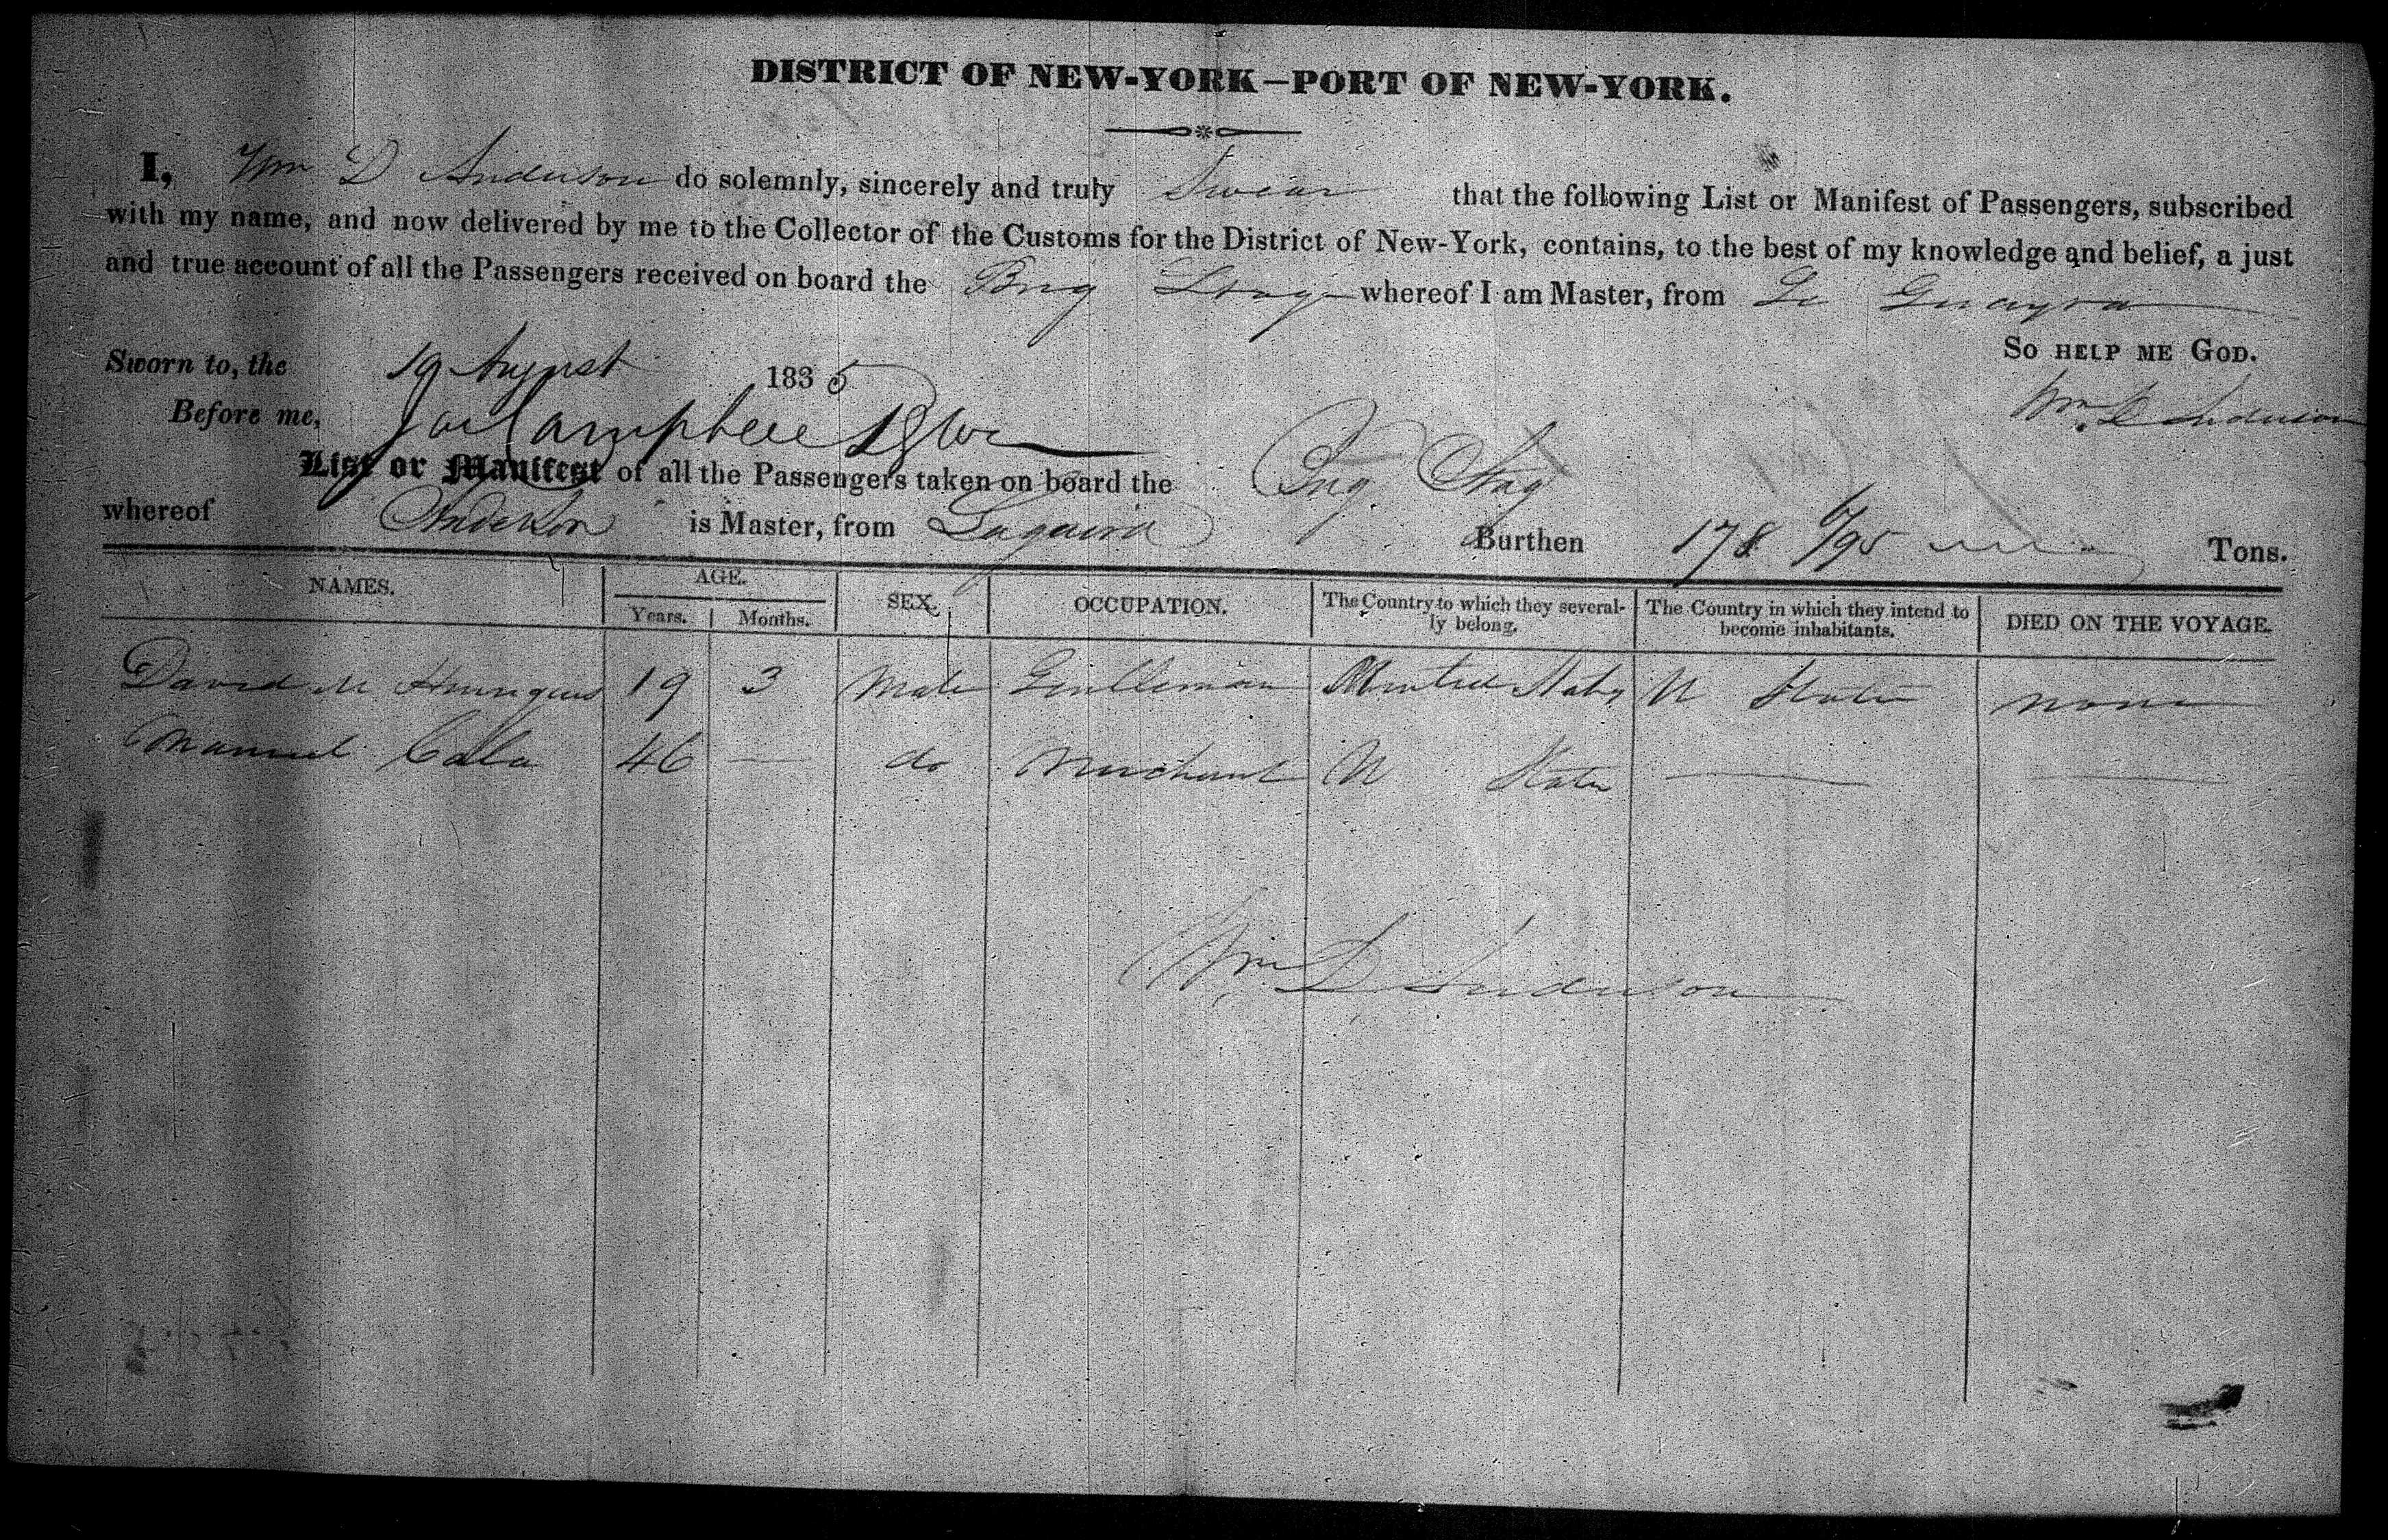 DISTRICT OF NEW-YORK—PORT OF NEW-YORK.
I, Wm D Anderson do solemnly, sincerely and truly Swear that the following List or Manifest of Passengers, subscribed
with my name, and now delivered by me to the Collector of the Customs for the District of New-York, contains, to the best of my knowledge and belief, a just
and true account of all the Passengers received on board the Brig Stag whereof I am Master, from La Guayra
So HELP ME GOD.
Sworn to, the 19 August 1835
Wm D Anderson
Before me, Campbell
List or Manifest of all the Passengers taken on board the Brig Stag
whereof Anderson is Master, from Laguira Burthen 178 6/95 Tons.
NAMES. AGE. Years. Months. SEX. OCCUPATION. The Country to which they severally belong. The Country in which they intend to become inhabitants. DIED ON THE VOYAGE.
David M Henriques 19 3 Male Gentleman States U States none
Manuel Cala 46 — do Merchant U States — —
Wm D Anderson